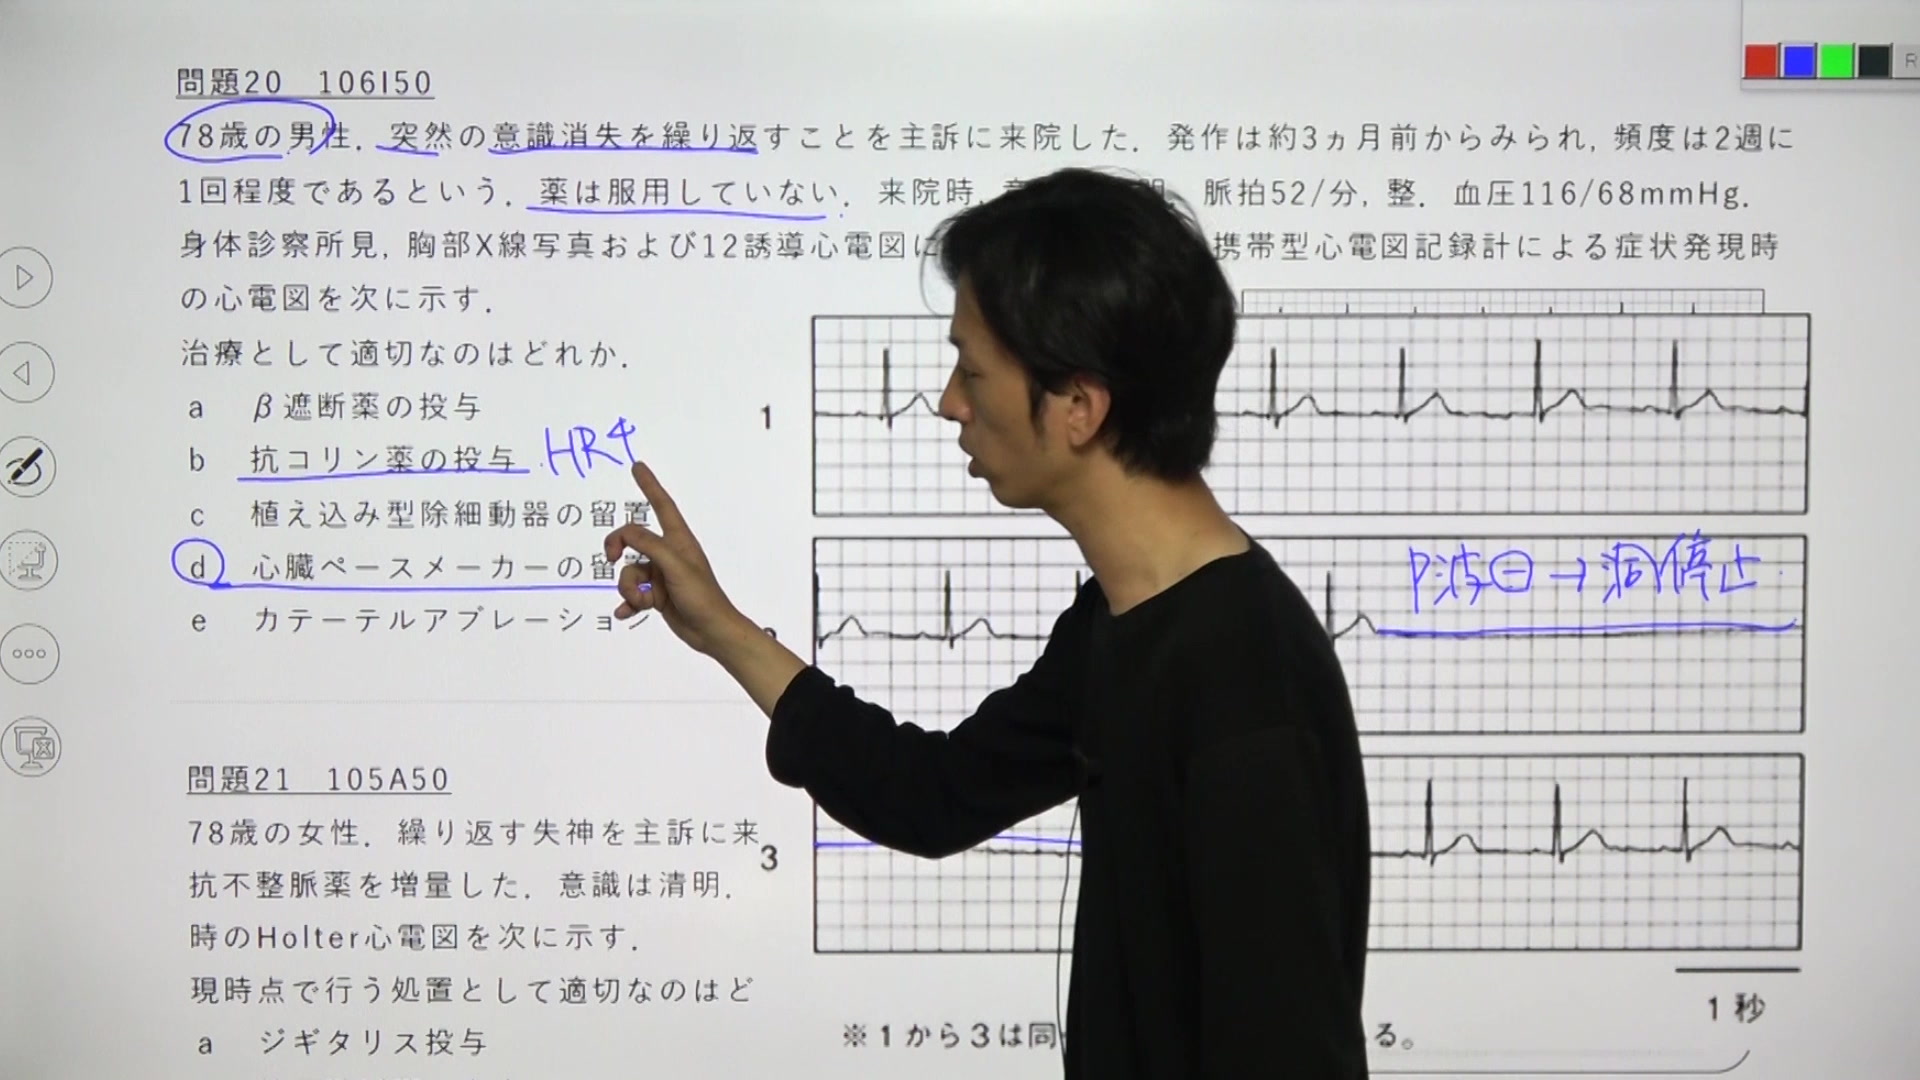 問題20 106I50
78歳の男性．突然の意識消失を繰り返すことを主訴に来院した．発作は約3ヵ月前からみられ，頻度は2週に
1回程度であるという．薬は服用していない．来院時， 脈拍52/分，整．血圧116/68mmHg．
身体診察所見，胸部X線写真および12誘導心電図に 携帯型心電図記録計による症状発現時
の心電図を次に示す．
治療として適切なのはどれか．
a β遮断薬の投与
b 抗コリン薬の投与 HR↑
c 植え込み型除細動器の留置
d 心臓ペースメーカーの留
e カテーテルアブレーション
1
P波⊖→洞停止
3
1秒
※1から3は同 る。
問題21 105A50
78歳の女性．繰り返す失神を主訴に来
抗不整脈薬を増量した．意識は清明．
時のHolter心電図を次に示す．
現時点で行う処置として適切なのはど
a ジギタリス投与
R